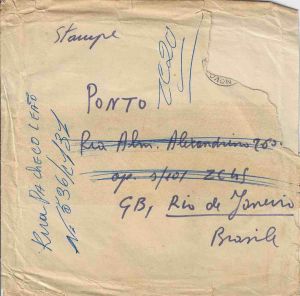 Stampe
ZC20
PONTO
Rua Alm. Alexandrino 760
ap. s/101 ZC45
GB, Rio de Janeiro
Brasile
Rua PACHECO LEÃO